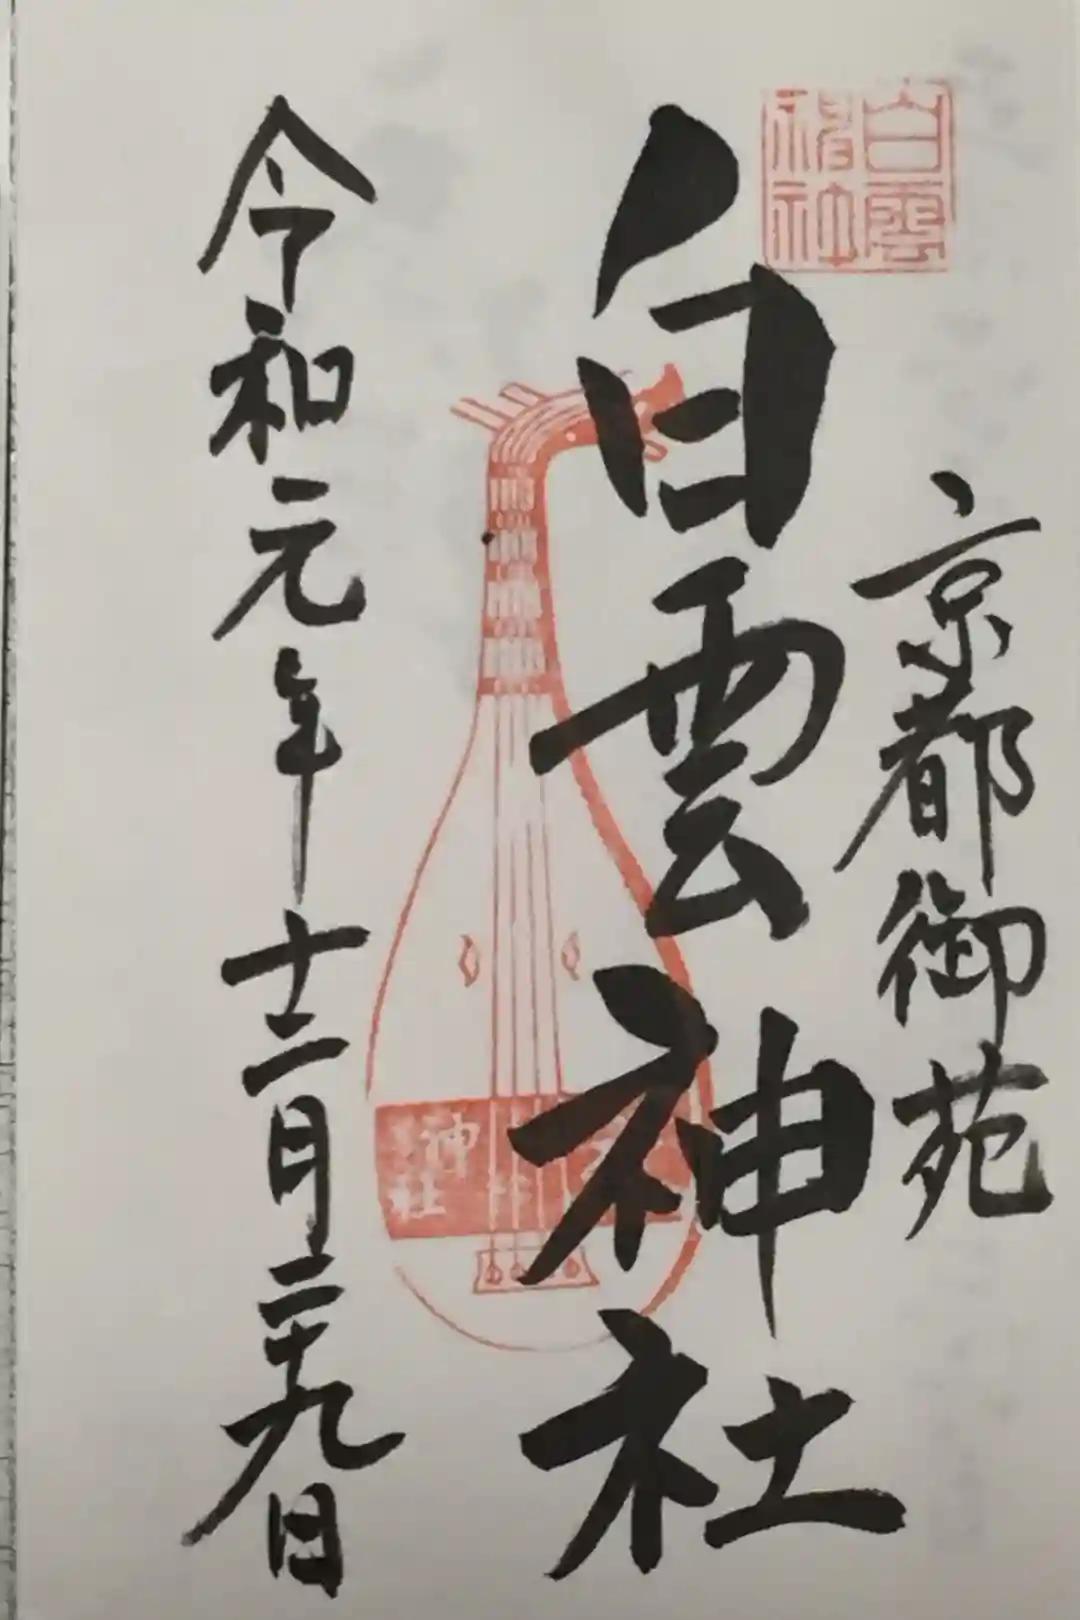 白雲神社
京都御苑
白雲神社
令和元年十二月二十九日
神社